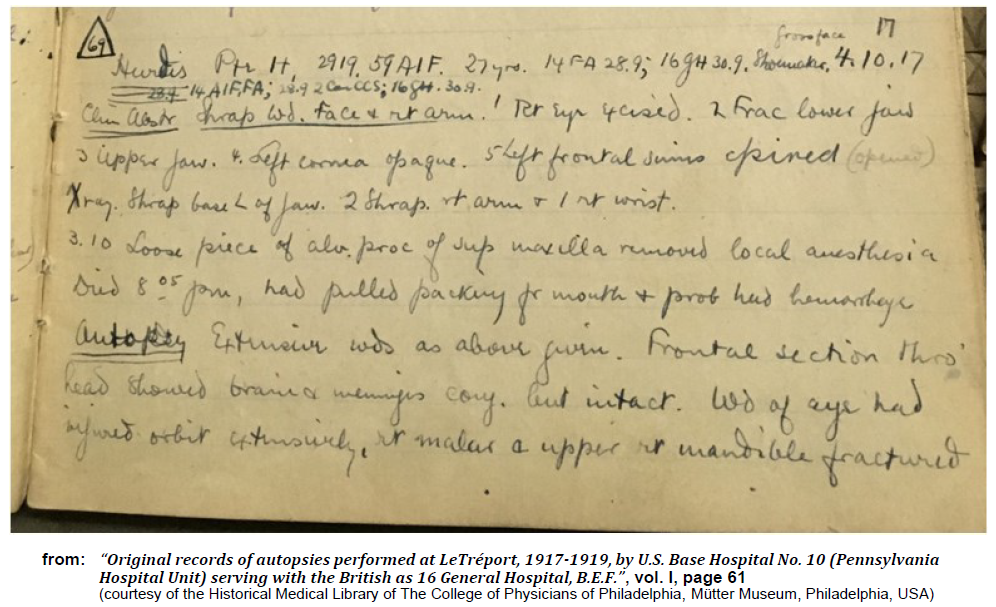 17
69
gross face
Hurdis Pte H, 2919, 59 AIF. 27yrs. 14 FA 28.9; 16 GH 30.9. Shoemaker, 4.10.17
28.9 14 AIF, FA; 28.9 2 Can CCS; 16 GH. 30.9.
Clin Abstr Shrap Wd. Face & rt arm. 1 Rt Eye excised. 2 Frac lower jaw
3 Upper Jaw. 4. Left cornea opaque. 5 Left frontal sinus opined (opened)
Xray. Shrap base L of Jaw. 2 Shrap. rt arm & 1 rt wrist.
3.10 Loose piece of alv. proc of sup maxilla removed local anesthesia
Died 8 05 pm, had pulled packing fr mouth & prob had hemorrhage
Autopsy Extensive wds as above given. Frontal section thro'
head showed brain & meninges cong. but intact. Wd of eye had
injured orbit extensively, rt malar & upper rt mandible fractured
from: "Original records of autopsies performed at LeTréport, 1917-1919, by U.S. Base Hospital No. 10 (Pennsylvania
Hospital Unit) serving with the British as 16 General Hospital, B.E.F.", vol. I, page 61
(courtesy of the Historical Medical Library of The College of Physicians of Philadelphia, Mütter Museum, Philadelphia, USA)